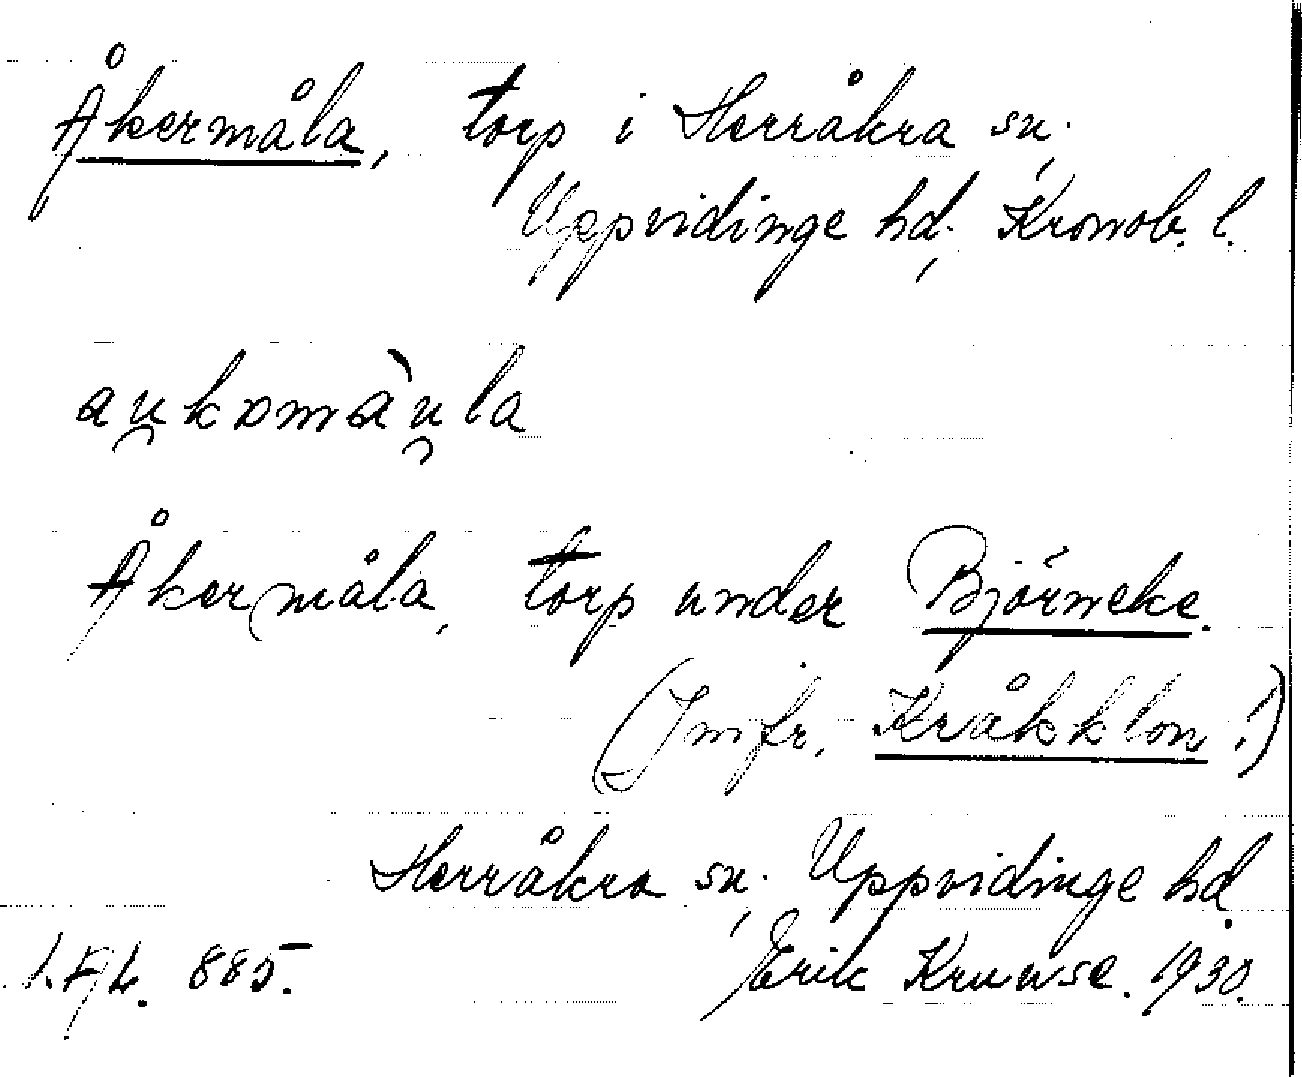 Åkermåla, torp i Herråkra sn.,
Uppvidinge hd., Kronob. l.
au̯kɒmàu̯la
Åkermåla, torp under Björneke.
(Jmfr. Kråkklon!)
Herråkra sn., Uppvidinge hd.
885. Erik Kruuse. 1930.